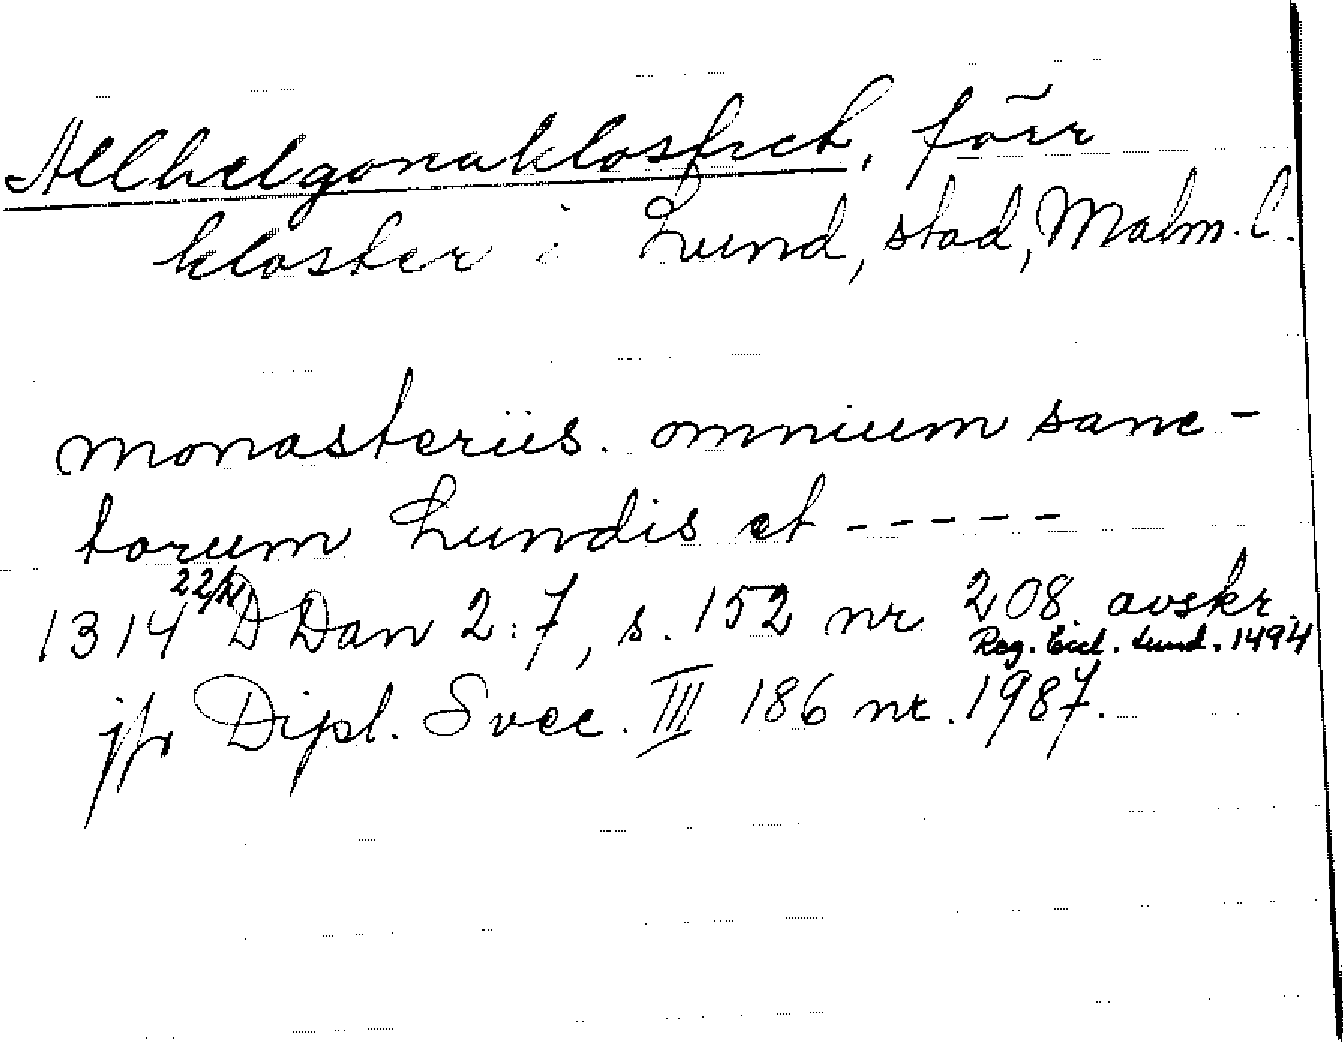 Allhelgonaklostret, förr
kloster i Lund, stad, Malm. l.
monasteriis. omnium sanc-
torum Lundis et -----
1314 22/11 DDan 2:7, s. 152 nr 208. avskr.
Reg. Eccl. Lund. 1494
jfr Dipl. Svec. III 186 nr. 1987.